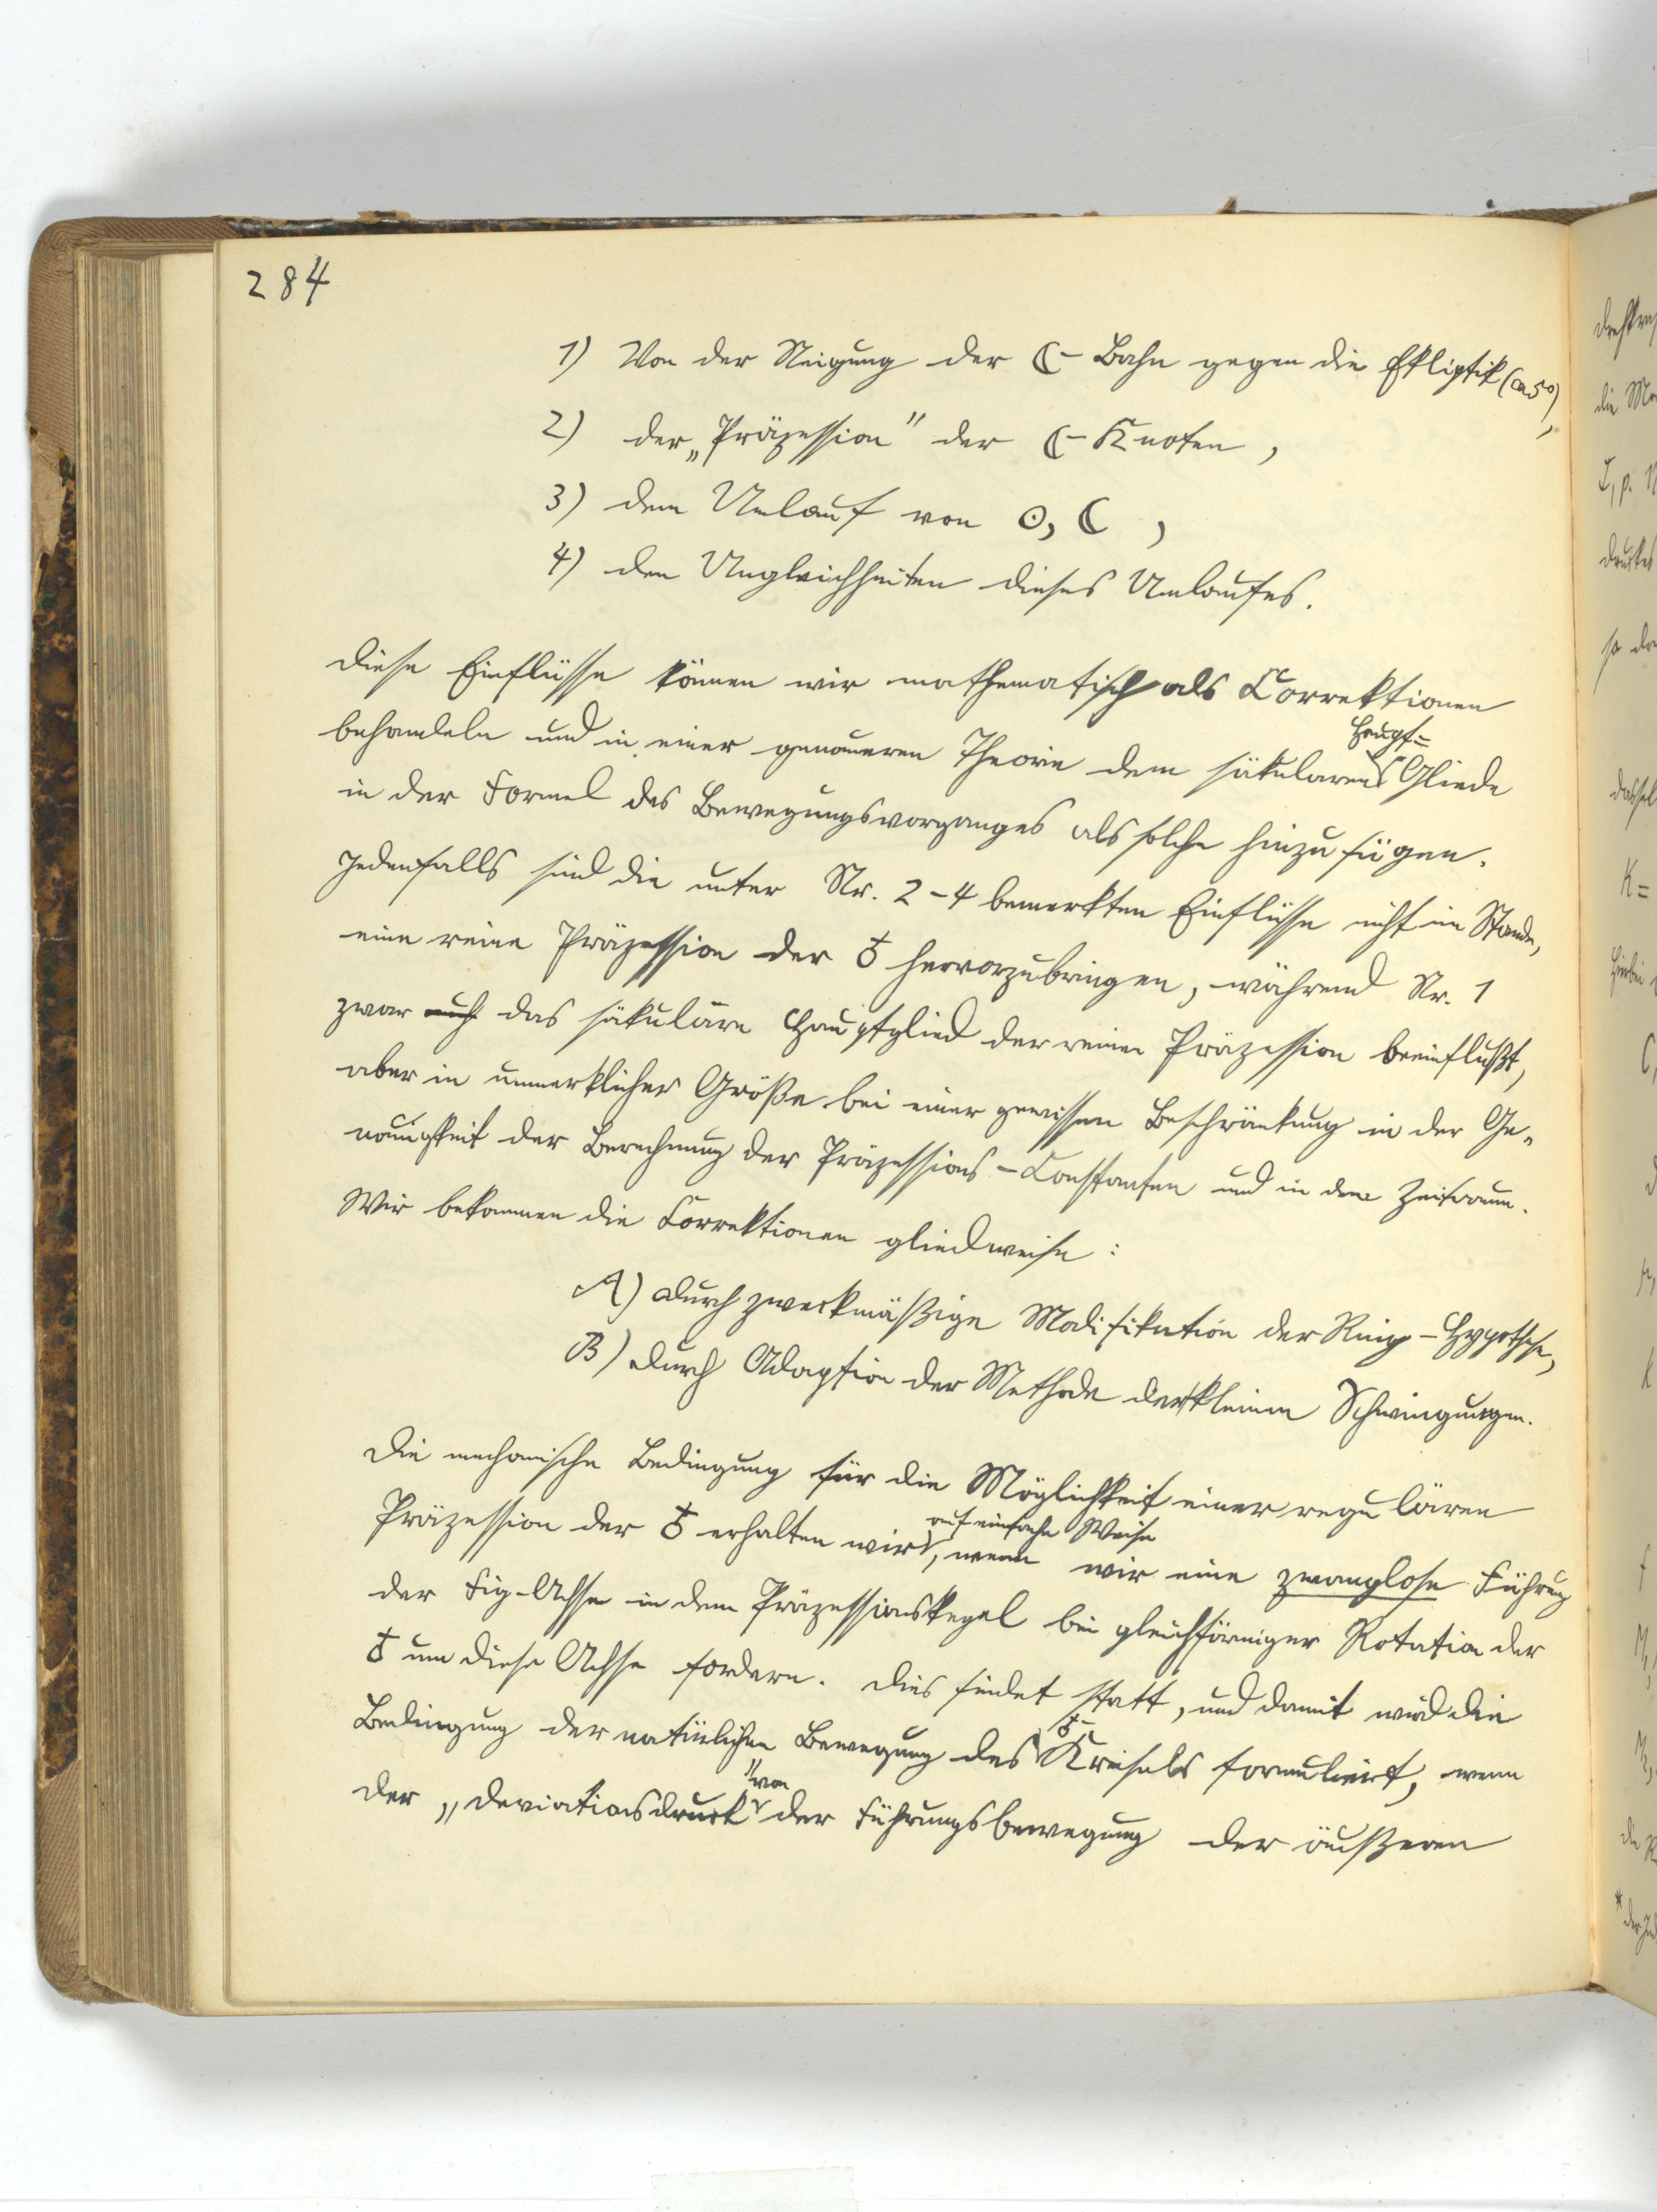 284
1) Von der Neigung der ☾-Bahn gegen die Ekliptik (ca 5°),
2) der „Präzession" der ☾-Knoten,
3) dem Umlauf von ☉, ☾ ,
4) den Ungleichheiten dieses Umlaufes.
Diese Einflüsse können wir mathematisch als Correktionen
behandeln und in einer genaueren Theorie dem säkularen Haupt= Gliede
in der Formel des Bewegungsvorganges als solche hinzufügen.
Jedenfalls sind die unter Nr. 2-4 bemerkten Einflüsse nicht im Stande,
eine reine Präzession der ♁ hervorzubringen, während Nr. 1
zwar auch das säkuläre Hauptglied der reinen Präzession beeinflußt,
aber in unmerklicher Größe bei einer gewissen Beschränkung in der Ge=
nauigkeit der Berechnung der Präzessions-Constanten und in dem Zeitraum.
Wir bekommen die Correktionen gliedweise:
A) durch zweckmäßige Modifikation der Ring-Hypothese,
B) durch Adaption der Methode der kleinen Schwingungen.
Die mechanische Bedingung für die Möglichkeit einer regulären
Präzession der ♁ erhalten wir auf einfache Weise, wenn wir eine zwanglose Führung
der Fig-Achse in dem Präzessionskegel bei gleichförmiger Rotation der
♁ um diese Achse fordern. Dies findet statt, und damit wird die
Bedingung der natürlichen Bewegung des ♁- Kreisels formuliert, wenn
der „Deviationsdruck" von der Führungsbewegung der äußeren
drehkra
die Mo
druckes
so da
dassel
K=
hierbei
die